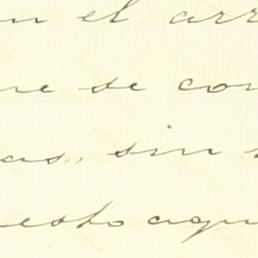 n el arr
ne se con
as, sin
esto aqu